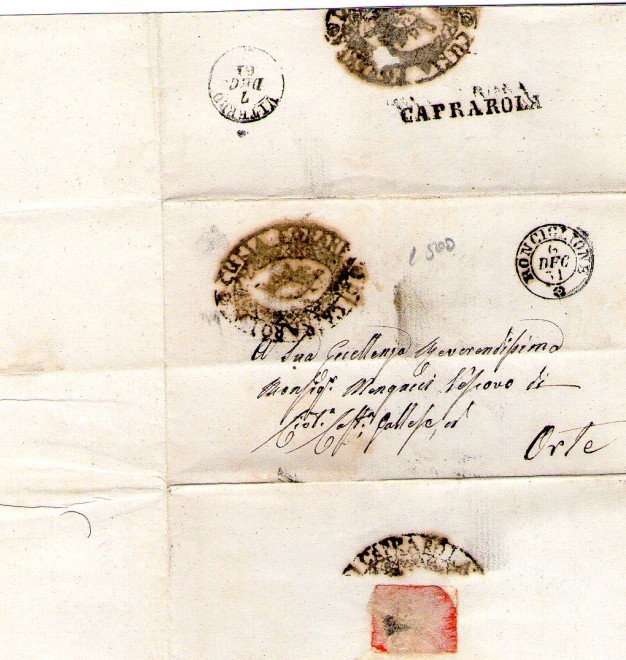 VITERBO
7
DEC
61
CURIA
CAPRAROLA
1500
CURIA
RONCIGLIONE
6
DEC
61
A Sua Eccellenza Reverendissima
Monsig.r Mengacci Vescovo di
Civ.a Cast.a Gallese, ed
Orte
CAPRAROLA